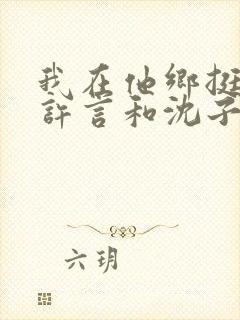 我在他鄉挺
許言和沈子
六玥